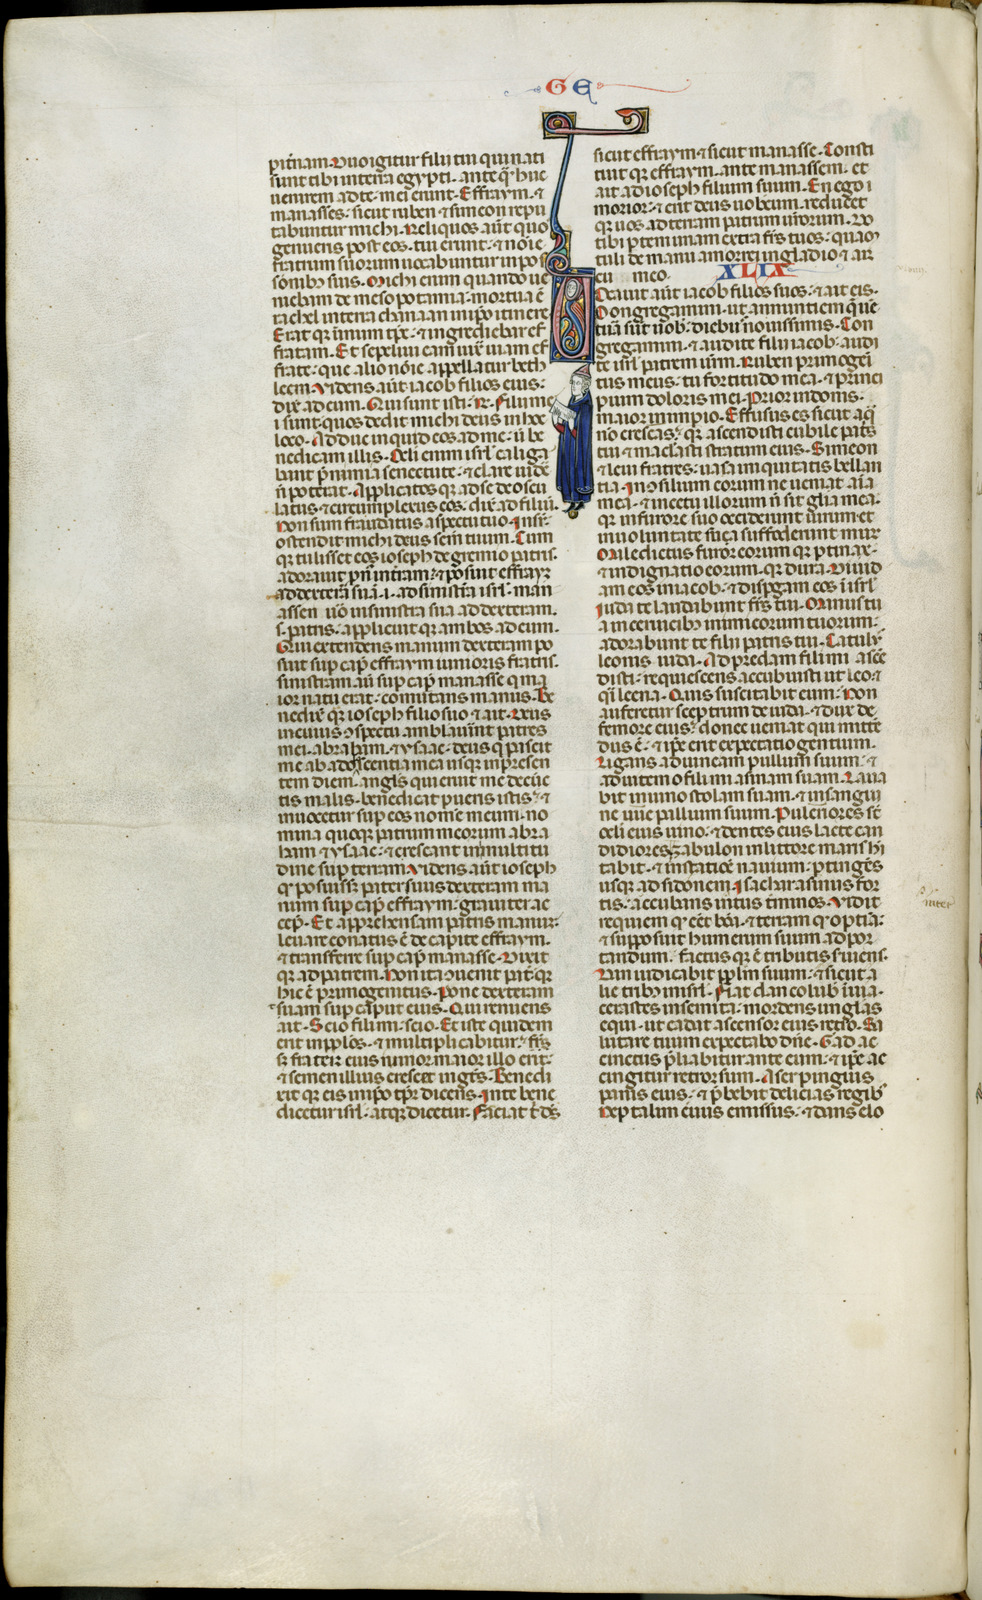 GE
pit̄nam. Duo igitur filii tui qui nati
sunt tibi in terra egypti. ante q̄ huc
uenirem ad te: mei erunt. Effraym. ⁊
manasses: sicut ruben ⁊ simeon repu
tabuntur michi. Reliquos aūt quo
genueris post eos. tui erunt: ⁊ noīe
fratrum suorum uocabuntur in pos
sōnibꝫ suis. Michi enim quando ue
niebam de mesopotamia: mortua ē
rachel in terra chanaan in ip̄o itinere
Erat q̄ uernum tp̄c: ⁊ ingrediebar ef
fratam. Et sepeliui eam iux̄ uiam ef
frate: que alio noīe appellatur beth
leem. Videns aūt iacob filios eius:
dix̄ ad eum. Qui sunt isti: R̄. Filii me
i sunt: quos dedit michi deus in hoc
loco. Adduc inquid eos ad me: ut be
nedicam illis. Oculi enim isrl̄ caliga
bant p̄ nimia senectute: ⁊ clare uide
n̄ poterat. Applicatos qꝫ ad se deoscu
latus ⁊ circumplexus eos: dix̄ ad filiū.
Non sum fraudatus aspectu tuo. Insup̄
ostendit michi deus sem̄ tuum. Cum
qꝫ tulisset eos ioseph de gremio patris.
adorauit pn̄s in terram: ⁊ posuit effraym
ad dexterā suā .i. ad sinistrā isrl̄. man
assen uo in sinistra sua ad dexteram.
s. patris: applicuit qꝫ ambos ad eum.
Qui extendens manum dexteram po
suit sup̄ cap̄ effraym iunioris fratris.
sinistram aū sup̄ cap̄ manasse q ma
ior natu erat: comutans manus. Be
nedix̄ qꝫ ioseph filio suo ⁊ ait. Deus
in cuius ɔspectu amblauerūt patres
mei. abraham. ⁊ ysaac: deus q pascit
me ab adolescentia mea usqꝫ in presen
tem diem. angls̄ qui eruit me de cūc
tis malis. benedicat pueris istis: ⁊
inuocetur sup̄ eos nom̄e meum. no
mina quoqꝫ patrum meorum abra
ham ⁊ ysaac: ⁊ crescant in multitu
dine sup̄ terram. Videns aūt ioseph
qꝫ posuissꝫ pater suus dexteram ma
num sup̄ cap̄ effraym: grauiter ac
cep̄. Et apprehensam patris manum:
leuare conatus ē de capite effraym.
⁊ transferre sup̄ cap̄ manasse. Dixit
qꝫ ad patrem. Non ita ɔuenit pat̄: qꝫ
hic ē primogenitus. Pone dexteram
suam sup̄ caput eius. Qui renuens
ait. Scio fili mi: scio. Et iste quidem
erit in pplōs. ⁊ multiplicabitur:
sꝫ frater eius iunior maior illo erit:
⁊ semen illius crescet in gt̄es. Benedi
xit qꝫ eis in ip̄o tp̄r dicens. In te bene
dicetur isrl̄. atqꝫ dicetur. Faciat t̄ ds̄
sicut effraym ⁊ sicut manasse. Consti
tuit qꝫ effraym. ante manassem. et
ait ad ioseph filium suum. En ego i
morior: ⁊ erit deus uobcum. reducet
qꝫ uos ad terram patrum urorum. Do
tibi ptem unam extra frs̄ tuos: quam
tuli de manu amorrei in gladio ⁊ ar
cu meo.
XLIX
Vocauit aūt iacob filios suos: ⁊ ait eis.
Congregamini. ut annuntiem que
tura sūt uob̄. diebꝫ nouissimis. Con
gregamini. ⁊ audite filii iacob: audi
te isrl̄ patrem ur̄m. Ruben primogeni
tus meus: tu fortitudo mea. ⁊ princi
pium doloris mei. Prior in donis.
maior in impio. Effusus es sicut aq̄
n̄o crescas: qꝫ ascendisti cubile patris
tui ⁊ maclasti stratum eius. Simeon
⁊ leui fratres: uasa iniquitatis bellan
tia. In ɔsilium eorum ne ueniat aīa
mea. ⁊ in cetu illorum n̄ sit glia mea:
qꝫ in furore suo occiderunt uirum et
in uoluntate sua suffoderunt mur
Maledictus furor eorum qꝫ ptinax.
⁊ indignatio eorum. qꝫ dura. Diuid
am eos in iacob. ⁊ dispgam eos ī isrl̄
Iuda te laudabunt frs̄ tui. Manus tu
a in ceruicibꝫ inimicorum tuorum:
adorabunt te filii patris tui. Catulꝰ
leonis iuda. Ad predam fili mi ascē
disti: requiescens accubuisti ut leo. ⁊
qꝫi leena. Quis suscitabit eum: Non
auferetur sceptrum de iuda. ⁊ dux de
femore eius: donec ueniat qui mitte
dus ē. ⁊ ip̄e erit expectatio gentium.
Ligans ad uineam pullum suum: ⁊
ad uitem o fili mi asinam suam. Laua
bit in uino stolam suam. ⁊ in sangui
ne uue pallium suum. Pulcriores st̄
oculi eius uino: ⁊ dentes eius lacte can
didiores. Zabulon in littore maris hi
tabit. ⁊ in statiōe nauium: ptinges
usqꝫ ad sidonem. Isachar asinus for
tis: accubans intus t̄minos. Vidit
requiem qꝫ eēt boā. ⁊ terram qꝫ optīa:
⁊ supposuit humerum suum ad por
tandum. factus qꝫ ē tributis suiens.
Dan iudicabit pplm̄ suum: ⁊ sicut a
lie tribꝫ in isrl̄. Fiat dan colub̄ ī uia.
cerastes in semita: mordens unglas
equi. ut cadat ascensor eius retro. Sa
lutare tuum expectabo dn̄e. Gad ac
cinctus pliabitur ante eum: ⁊ ip̄e ac
cingitur retrorsum. Aser pinguis
panis eius: ⁊ p̄bebit delicias regibꝫ
Neptalim ceruus emissus: ⁊ dans elo